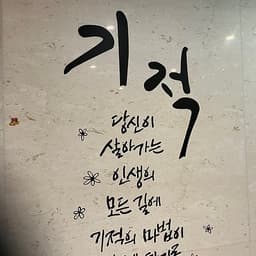 기적
당신이
살아가는
인생의
모든 길에
기적의 마법이